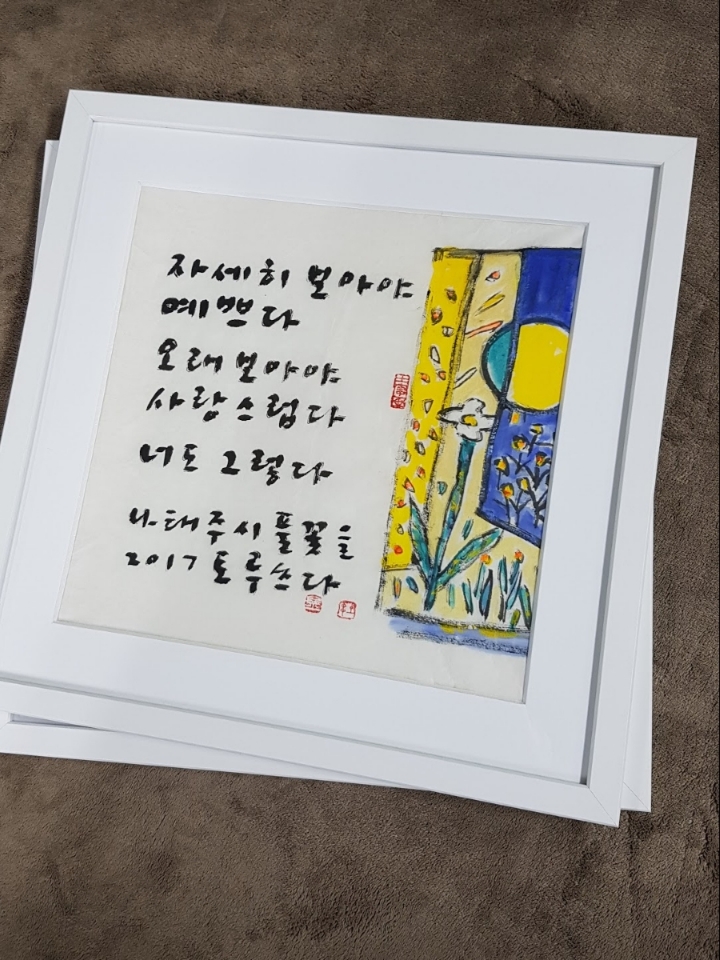 자세히 보아야
예쁘다
오래 보아야
사랑스럽다
너도 그렇다
나태주 시 풀꽃을
2017 토루 쓰다